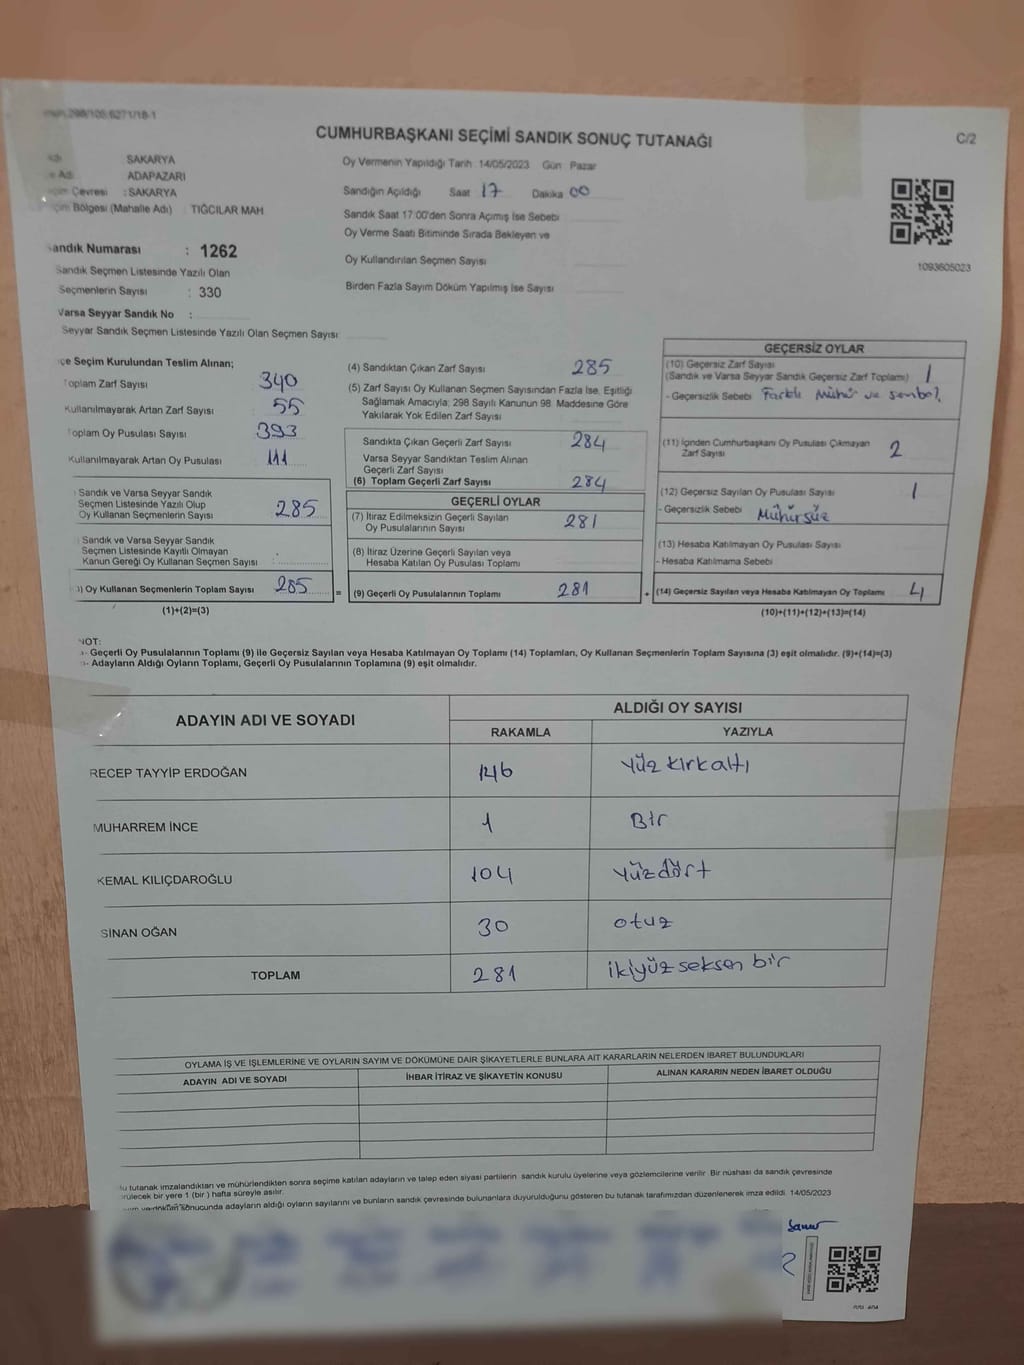 298/105.6271/18-1
CUMHURBAŞKANI SEÇİMİ SANDIK SONUÇ TUTANAĞI
C/2
: SAKARYA
ADAPAZARI
Çevresi : SAKARYA
Bölgesi (Mahalle Adı) : TIĞCILAR MAH
Oy Vermenin Yapıldığı Tarih 14/05/2023 Gün Pazar
Sandığın Açıldığı Saat 17 Dakika 00
Sandık Saat 17:00'den Sonra Açımış İse Sebebi
Oy Verme Saati Bitiminde Sırada Bekleyen ve
Oy Kullandırılan Seçmen Sayısı
Birden Fazla Sayım Döküm Yapılmış İse Sayısı
1093605023
Sandık Numarası : 1262
Sandık Seçmen Listesinde Yazılı Olan
Seçmenlerin Sayısı : 330
Varsa Seyyar Sandık No :
Seyyar Sandık Seçmen Listesinde Yazılı Olan Seçmen Sayısı
Seçim Kurulundan Teslim Alınan;
Toplam Zarf Sayısı 340
Kullanılmayarak Artan Zarf Sayısı 55
Toplam Oy Pusulası Sayısı 393
Kullanılmayarak Artan Oy Pusulası 111
Sandık ve Varsa Seyyar Sandık
Seçmen Listesinde Yazılı Olup
Oy Kullanan Seçmenlerin Sayısı 285
Sandık ve Varsa Seyyar Sandık
Seçmen Listesinde Kayıtlı Olmayan
Kanun Gereği Oy Kullanan Seçmen Sayısı :
Oy Kullanan Seçmenlerin Toplam Sayısı 285 =
(1)+(2)=(3)
(4) Sandıktan Çıkan Zarf Sayısı 285
(5) Zarf Sayısı Oy Kullanan Seçmen Sayısından Fazla İse, Eşitliği
Sağlamak Amacıyla; 298 Sayılı Kanunun 98. Maddesine Göre
Yakılarak Yok Edilen Zarf Sayısı
Sandıkta Çıkan Geçerli Zarf Sayısı 284
Varsa Seyyar Sandıktan Teslim Alınan
Geçerli Zarf Sayısı
(6) Toplam Geçerli Zarf Sayısı 284
GEÇERLİ OYLAR
(7) İtiraz Edilmeksizin Geçerli Sayılan
Oy Pusulalarının Sayısı 281
(8) İtiraz Üzerine Geçerli Sayılan veya
Hesaba Katılan Oy Pusulası Toplamı
(9) Geçerli Oy Pusulalarının Toplamı 281 +
GEÇERSİZ OYLAR
(10) Geçersiz Zarf Sayısı
(Sandık ve Varsa Seyyar Sandık Geçersiz Zarf Toplamı) 1
- Geçersizlik Sebebi Farklı Mühür ve sembol,
(11) İçinden Cumhurbaşkanı Oy Pusulası Çıkmayan
Zarf Sayısı 2
(12) Geçersiz Sayılan Oy Pusulası Sayısı 1
- Geçersizlik Sebebi Mühürsüz
(13) Hesaba Katılmayan Oy Pusulası Sayısı
- Hesaba Katılmama Sebebi
(14) Geçersiz Sayılan veya Hesaba Katılmayan Oy Toplamı 4
(10)+(11)+(12)+(13)=(14)
NOT:
- Geçerli Oy Pusulalarının Toplamı (9) ile Geçersiz Sayılan veya Hesaba Katılmayan Oy Toplamı (14) Toplamları, Oy Kullanan Seçmenlerin Toplam Sayısına (3) eşit olmalıdır. (9)+(14)=(3)
- Adayların Aldığı Oyların Toplamı, Geçerli Oy Pusulalarının Toplamına (9) eşit olmalıdır.
ADAYIN ADI VE SOYADI
ALDIĞI OY SAYISI
RAKAMLA YAZIYLA
RECEP TAYYİP ERDOĞAN 146 yüz kırkaltı
MUHARREM İNCE 1 Bir
KEMAL KILIÇDAROĞLU 104 yüzdört
SİNAN OĞAN 30 otuz
TOPLAM 281 ikiyüz seksen bir
OYLAMA İŞ VE İŞLEMLERİNE VE OYLARIN SAYIM VE DÖKÜMÜNE DAİR ŞİKAYETLERLE BUNLARA AİT KARARLARIN NELERDEN İBARET BULUNDUKLARI
ADAYIN ADI VE SOYADI İHBAR İTİRAZ VE ŞİKAYETİN KONUSU ALINAN KARARIN NEDEN İBARET OLDUĞU
tutanak imzalandıktan ve mühürlendikten sonra seçime katılan adayların ve talep eden siyasi partilerin sandık kurulu üyelerine veya gözlemcilerine verilir. Bir nüshası da sandık çevresinde
görülecek bir yere 1 (bir) hafta süreyle asılır.
sonucunda adayların aldığı oyların sayılarını ve bunların sandık çevresinde bulunanlara duyurulduğunu gösteren bu tutanak tarafımızdan düzenlenerek imza edildi. 14/05/2023